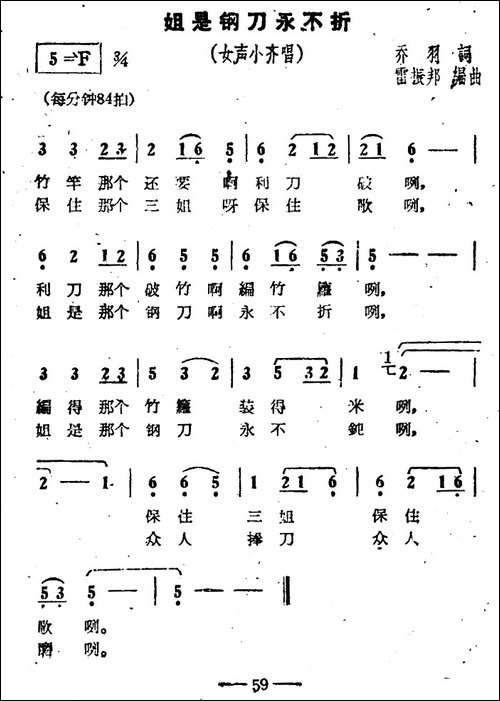 姐是钢刀永不折
(女声小齐唱)
5=F 3/4
乔羽詞
雷振邦 編曲
(每分钟84拍)
3 3 2 3 | 2 1 6 5 | 6 2 1 2 | 2 1 6 — |
竹竿那个还要啊利刀破咧,
保住那个三姐呀保住歌咧,
6 2 1 2 | 6 5 5 | 6 1 6 5 3 | 5 — — |
利刀那个破竹啊編竹籮咧,
姐是那个钢刀啊永不折咧,
3 3 2 3 | 5 3 2 | 3 5 3 2 | 1 2 — |
編得那个竹籮装得米咧,
姐是那个钢刀永不鈍咧,
2 — 1 | 6 6 5 | 2 1 6 | 6 2 1 6 |
保住三姐保住
众人捧刀众人
5 3 5 — | 5 — ‖
歌咧。
咧。
— 59 —